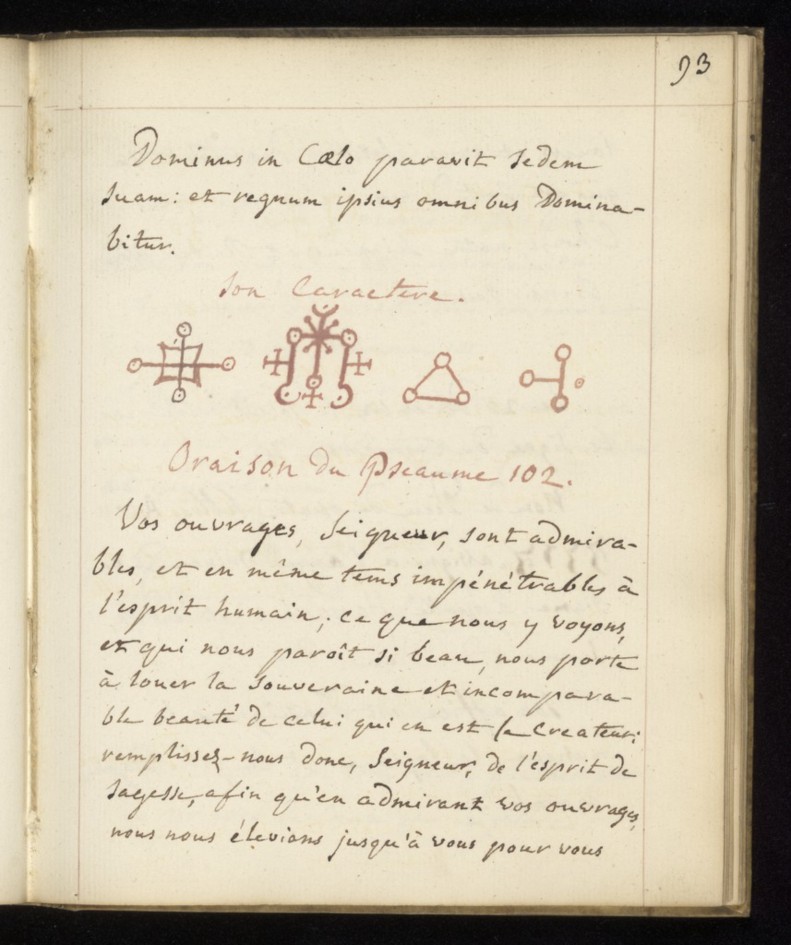 93
Dominus in Cœlo paravit sedem
suam: et regnum ipsius omnibus Domina-
bitur.
Son Caractere.
Oraison du Pseaume 102.
Vos ouvrages, Seigneur, sont admira-
bles, et en même tems impénétrables à
l'esprit humain; ce que nous y voyons,
et qui nous paroît si beau, nous porte
à louer la souveraine et incompara-
ble beauté de celui qui en est le Createur:
remplissez-nous donc, Seigneur, de l'esprit de
sagesse, afin qu'en admirant vos ouvrages,
nous nous élevions jusqu'à vous pour vous